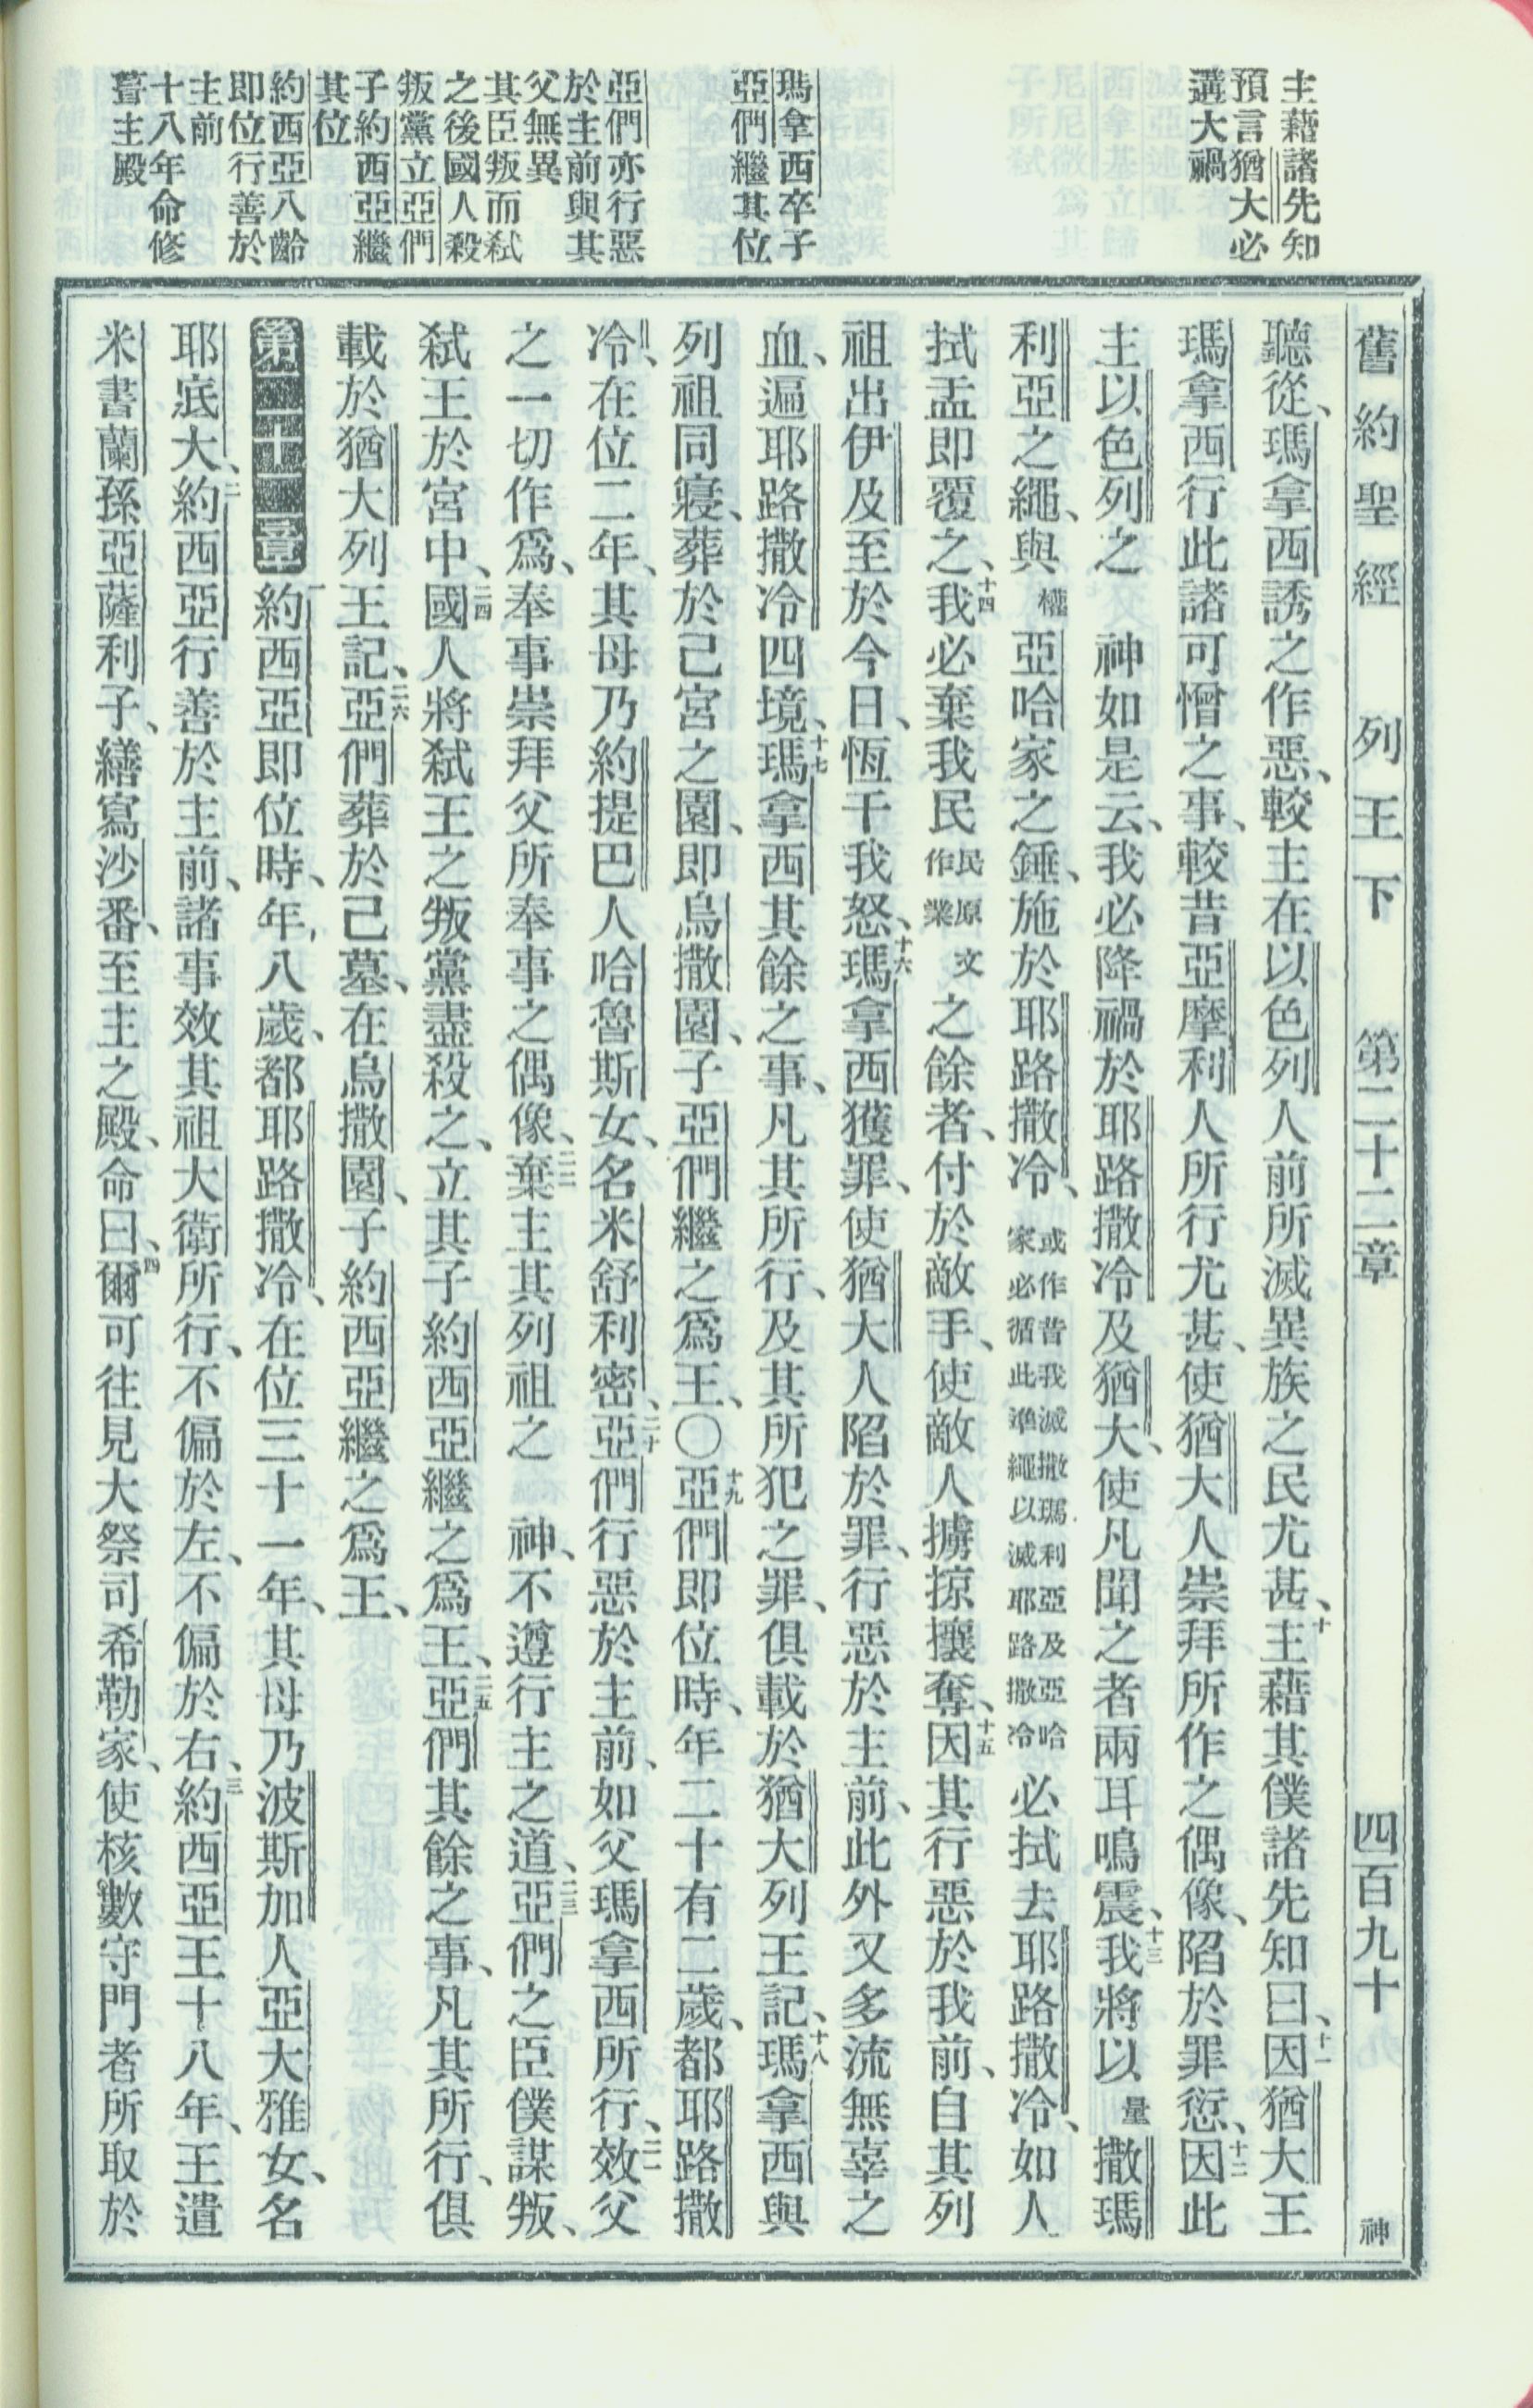 主藉諸先知
預言猶大必
遘大禍
瑪拿西卒子
亞們繼其位
亞們亦行惡
於主前與其
父無異
其臣叛而弒
之後國人殺
叛黨立亞們
子約西亞繼
其位
約西亞八齡
即位行善於
主前
十八年命修
葺主殿
舊約聖經 列王下 第二十二章 四百九十 神
聽從、瑪拿西誘之作惡、較主在以色列人前所滅異族之民尤甚、十主藉其僕諸先知曰、十一因猶大王
瑪拿西行此諸可憎之事、較昔亞摩利人所行尤甚、使猶大人崇拜所作之偶像、陷於罪愆、十二因此
主以色列之 神如是云、我必降禍於耶路撒冷及猶大、使凡聞之者兩耳鳴震、十三我將以量撒瑪
利亞之繩、與權亞哈家之錘、施於耶路撒冷、或作昔我滅撒瑪利亞及亞哈家必循此準繩以滅耶路撒冷必拭去耶路撒冷、如人
拭盂即覆之、十四我必棄我民民原文作業之餘者、付於敵手、使敵人擄掠攘奪、十五因其行惡於我前、自其列
祖出伊及至於今日、恆干我怒、十六瑪拿西獲罪、使猶大人陷於罪、行惡於主前、此外又多流無辜之
血、遍耶路撒冷四境、十七瑪拿西其餘之事、凡其所行、及其所犯之罪、俱載於猶大列王記、十八瑪拿西與
列祖同寢、葬於己宮之園、即烏撒園、子亞們繼之爲王、〇十九亞們即位時、年二十有二歲、都耶路撒
冷、在位二年、其母乃約提巴人哈魯斯女、名米舒利密、二十亞們行惡於主前、如父瑪拿西所行、二一效父
之一切作爲、奉事崇拜父所奉事之偶像、二二棄主其列祖之 神、不遵行主之道、二三亞們之臣僕謀叛、
弒王於宮中、二四國人將弒王之叛黨盡殺之、立其子約西亞繼之爲王、二五亞們其餘之事、凡其所行、俱
載於猶大列王記、二六亞們葬於己墓、在烏撒園、子約西亞繼之爲王、
第二十二章 一約西亞即位時、年八歲、都耶路撒冷、在位三十一年、其母乃波斯加人亞大雅女、名
耶底大、二約西亞行善於主前、諸事效其祖大衛所行、不偏於左、不偏於右、三約西亞王十八年、王遣
米書蘭孫亞薩利子、繕寫沙番、至主之殿、命曰、四爾可往見大祭司希勒家、使核數守門者所取於